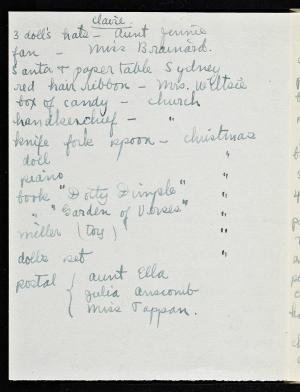 Claire.
3 doll's hats - Aunt Jennie
fan - Miss Brainard.
Santa + paper table Sydney
red hair ribbon - Mrs. Wiltsie
box of candy - church
handkerchief - "
knife fork spoon - christmas
doll "
piano "
book "Dotty Dimple" "
" "Garden of Verses" "
miller (toy) "
dolls set "
postal { aunt Ella
Julia Anscomb
Miss Tappan.